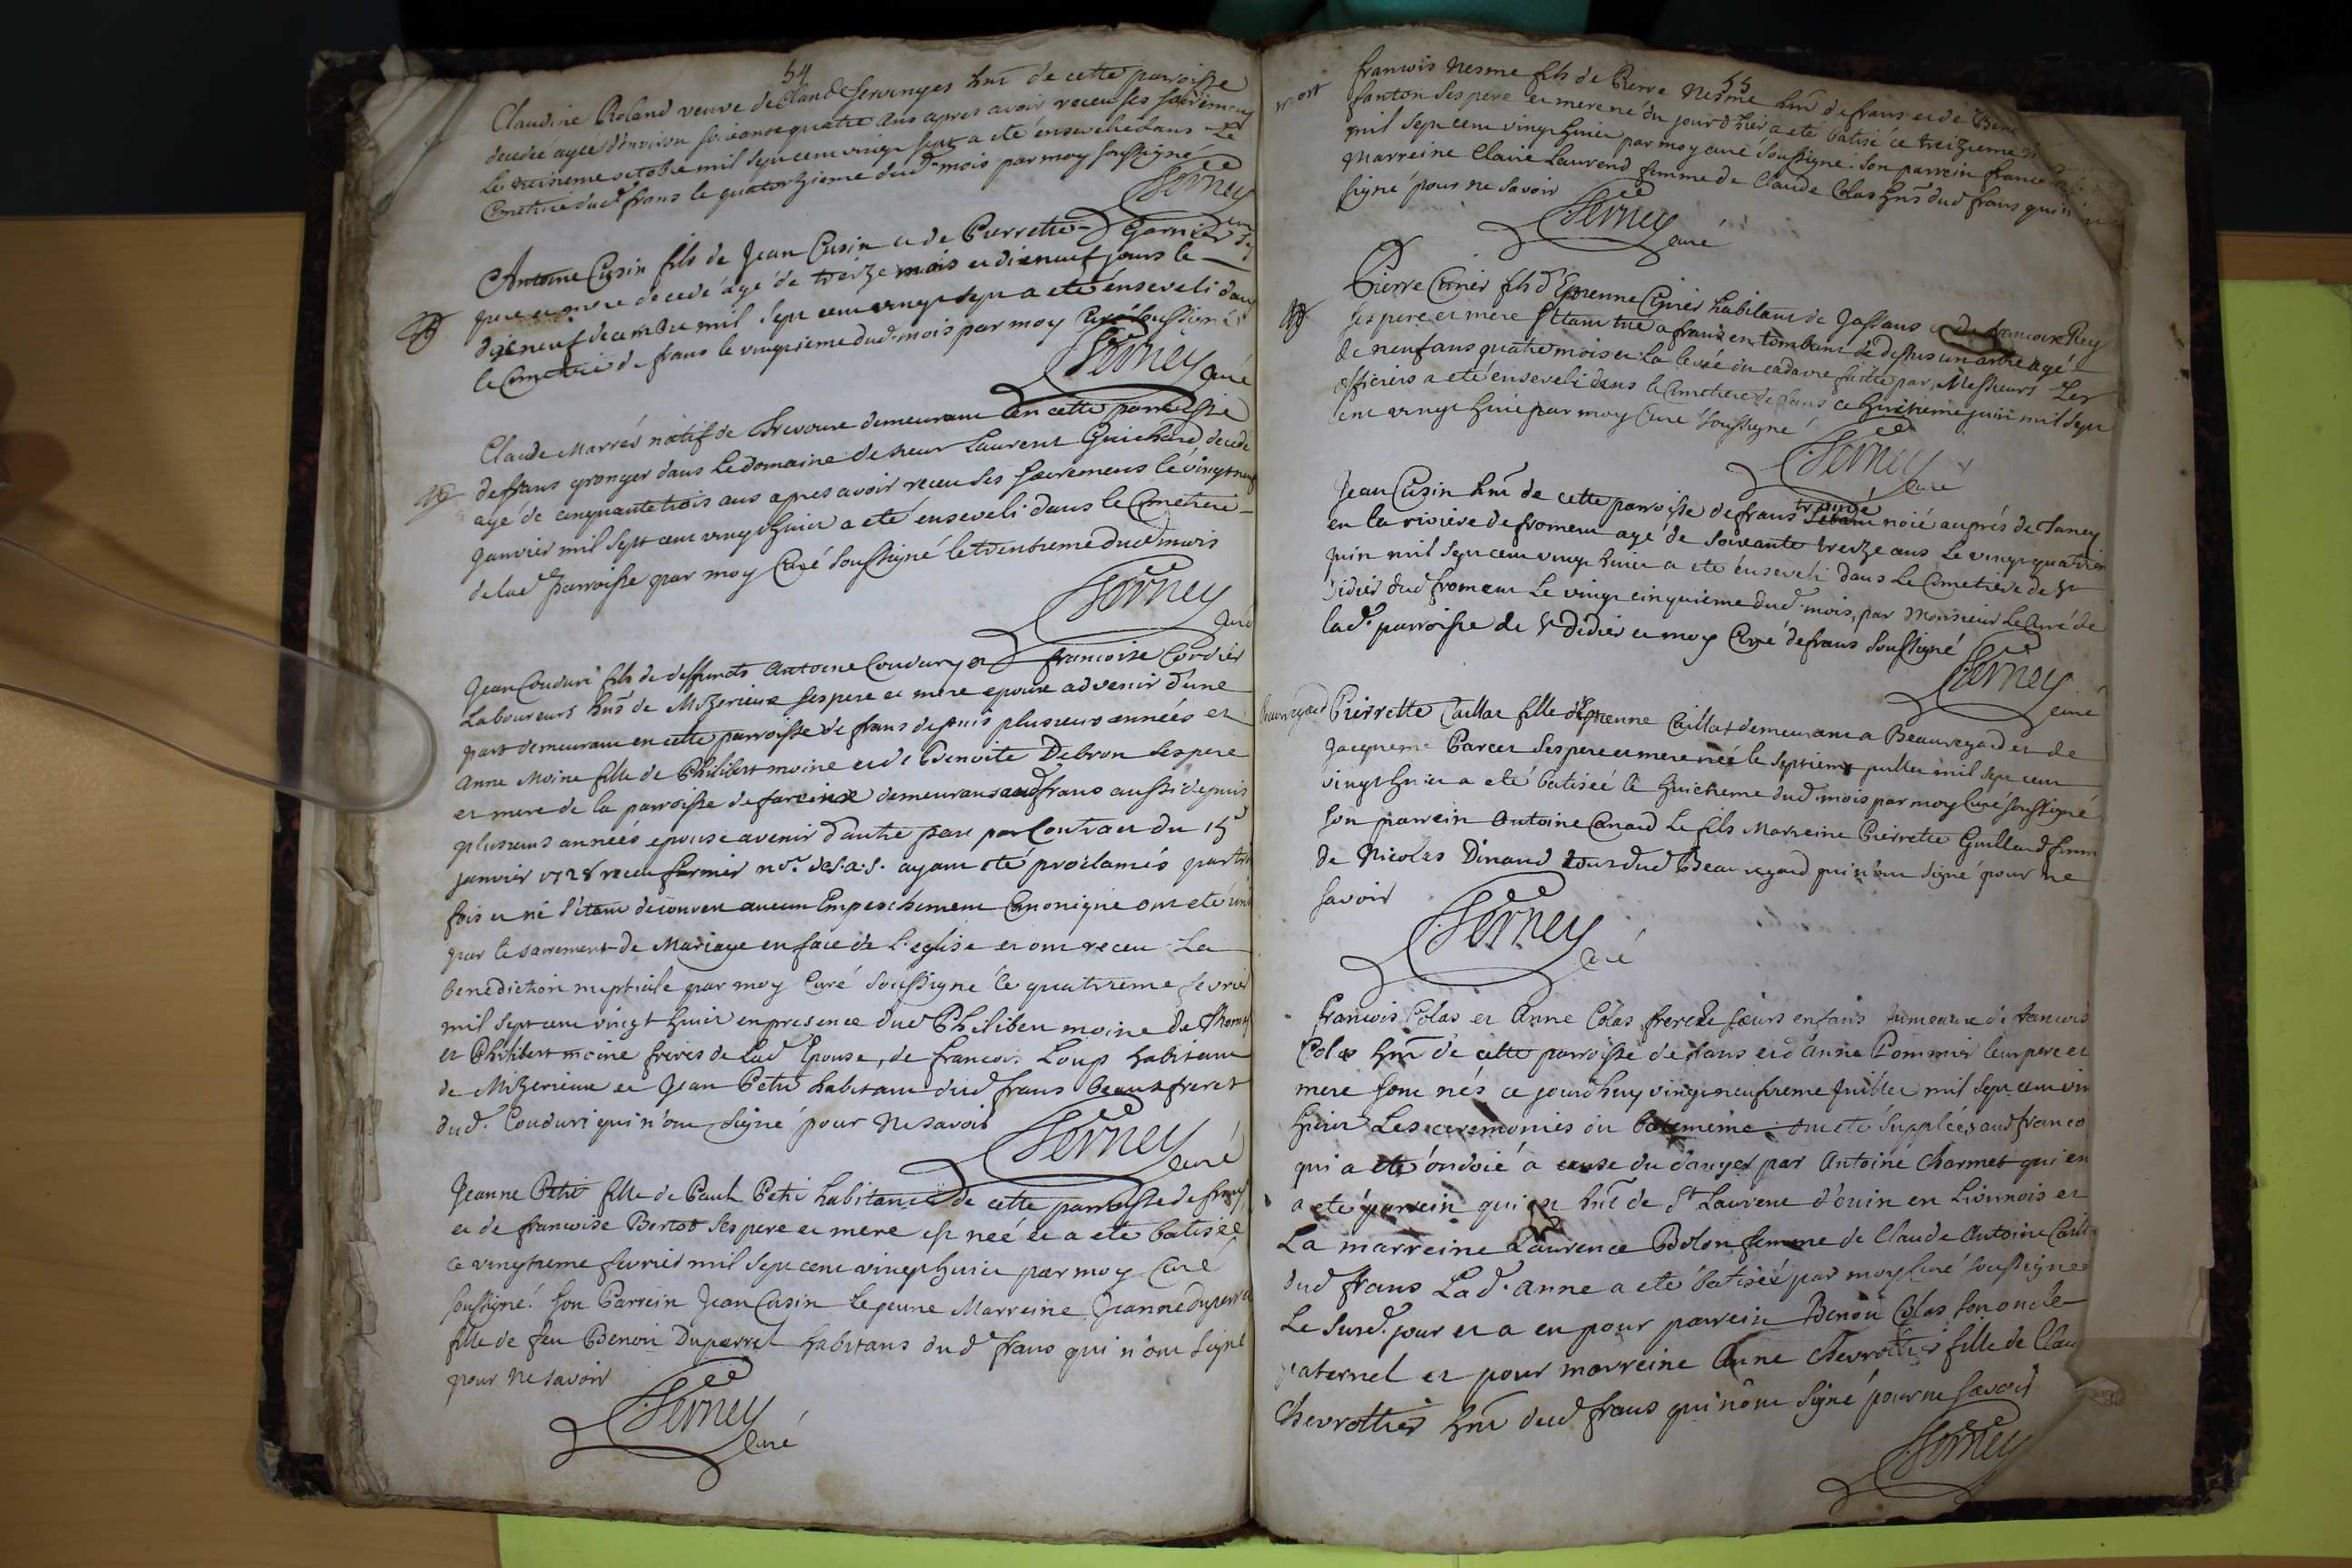 54
Claudine Roland veuve de Claude Servinges hnt de cette parroisse
decedeé agée d'environ soixante quatre ans apres avoir receu ses sacremens
le treizieme octobre mil sept cent vingt sept a eté ensevelie dans le
Cimetiere dud frans le quatorzieme dud mois par moy soussigné
Serney curé
Antoine Cusin fils de Jean Cusin et de Pierrette Garnier ses
pere et mere decedé agé de treize mois et dixneuf jours le
dixneuf decembre mil sept cent vingt sept a eté enseveli dans
le Cimetiere de frans le vingtieme dud mois par moy Curé soussigné
Serney curé
Claude Marrés natif de Trevoux demeurant en cette parroisse
de frans granger dans le domaine de sieur Laurent Guichard decedé
agé de cinquante trois ans apres avoir receu ses sacremens le vingt neuf
Janvier mil sept cent vingt huict a eté enseveli dans le Cimetiere
de lad parroisse par moy Curé soussigné le trentieme dud mois
Serney Curé
Jean Couduri fils de deffunts Antoine Coudury et francoise Cordier
Laboureurs hns de Mizerieux ses pere et mere epoux advenir d'une
part demeurant en cette parroisse de frans depuis plusieurs années et
Anne Moine fille de Philibert moine et de Benoite Debron ses pere
et mere de la parroisse de fareins demeurans aud frans aussi depuis
plusieurs années epouse avenir d'autre part par Contract du 15e
janvier 1728 receu fermier nore de s.a.s. ayant eté proclamés par trois
fois et ne s'etant decouvert aucun Empeschement Canonique ont eté unis
par le sacrement de Mariage en face de l'eglise et ont receu la
benediction nuptiale par moy Curé soussigné le quatrieme fevrier
mil sept cent vingt huict en presence dud Philibert moine de Thomas
et Philibert moine freres de lad Epouse, de francois Loup habitant
de Mizerieux et Jean Petit habitant dud frans beaux freres
dud. Couduri qui n'ont signé pour ne savoir
Serney curé
Jeanne Petit fille de Paul Petit habitant de cette parroisse de frans
et de francoise Bertot ses pere et mere est neé et a eté batiseé
ce vingtieme fevrier mil sept cent vingt huict par moy Curé
soussigné. son Parrein Jean Cusin le jeune Marreine Jeanne Duperret
fille de feu Benoit Duperret habitans dud frans qui n'ont signé
pour ne savoir
Serney Curé
55
mort
francois Nesme fils de Pierre Nesme hnt de frans et de
fanton ses pere et mere né du jour d'hier a eté batisé ce treizieme
mil sept cent vingt huict par moy curé soussigné. son parrein
Marreine Claire Laurend femme de Claude Colas hns dud frans qui n'ont
signé pour ne savoir
Serney curé
Pierre Cinier fils d'Etienne Cinier habitant de Jassans et de francoise Rey
ses pere et mere s'etant tué a frans en tombant de dessus un arbre agé
de neuf ans quatre mois et la leveé du cadavre faitte par Messieurs Les
officiers a eté enseveli dans le Cimetiere de frans ce huictieme juin mil sept
cent vingt huict par moy Curé soussigné
Serney curé
Jean Cusin hnt de cette parroisse de frans trouvé noié auprés de
en la riviere de fromens agé de soixante treize ans le vingt quatrieme
juin mil sept cent vingt huict a eté enseveli dans le Cimetiere de St
Didier dud fromens le vingt cinquieme dud. mois, par Monsieur le Curé de
lad. parroisse de St Didier et moy Curé de frans soussigné
Serney curé
Beauregard
Pierrette Caillat fille d'Etienne Caillat demeurant a Beauregard et de
Jacqueme Barcet ses pere et mere neé le septieme juillet mil sept cent
vingt huict a eté batiseé le huictieme dud. mois par moy Curé soussigné
son parrein Antoine Canard le fils Marreine Pierrette Guilland femme
de Nicolas Dinand tous dud Beauregard qui n'ont signé pour ne
savoir
Serney curé
francois Colas et Anne Colas frere et sœurs enfans jumeaux de francois
Colas hnt de cette parroisse de frans et d'anne Pommier leur pere et
mere sont nés ce jourd'huy vingt neufvieme juillet mil sept cent vin
huict Les ceremonies du bateme ont eté suppleés aud franco
qui a eté ondoié a cause du danger par Antoine Charmet qui en
a eté parrein qui est hnt de St Laurent d'ouin en Lionnois et
La marreine Laurence Bolon femme de Claude Antoine
dud frans Lad. Anne a eté batiseé par moy Curé soussigné
Le susd. jour et a eu pour parrein Benoit Colas son oncle
paternel et pour marreine Anne Chevrottier fille de Clau
Chevrottier hnt dud frans qui n'ont signé pour ne savoir
Serney